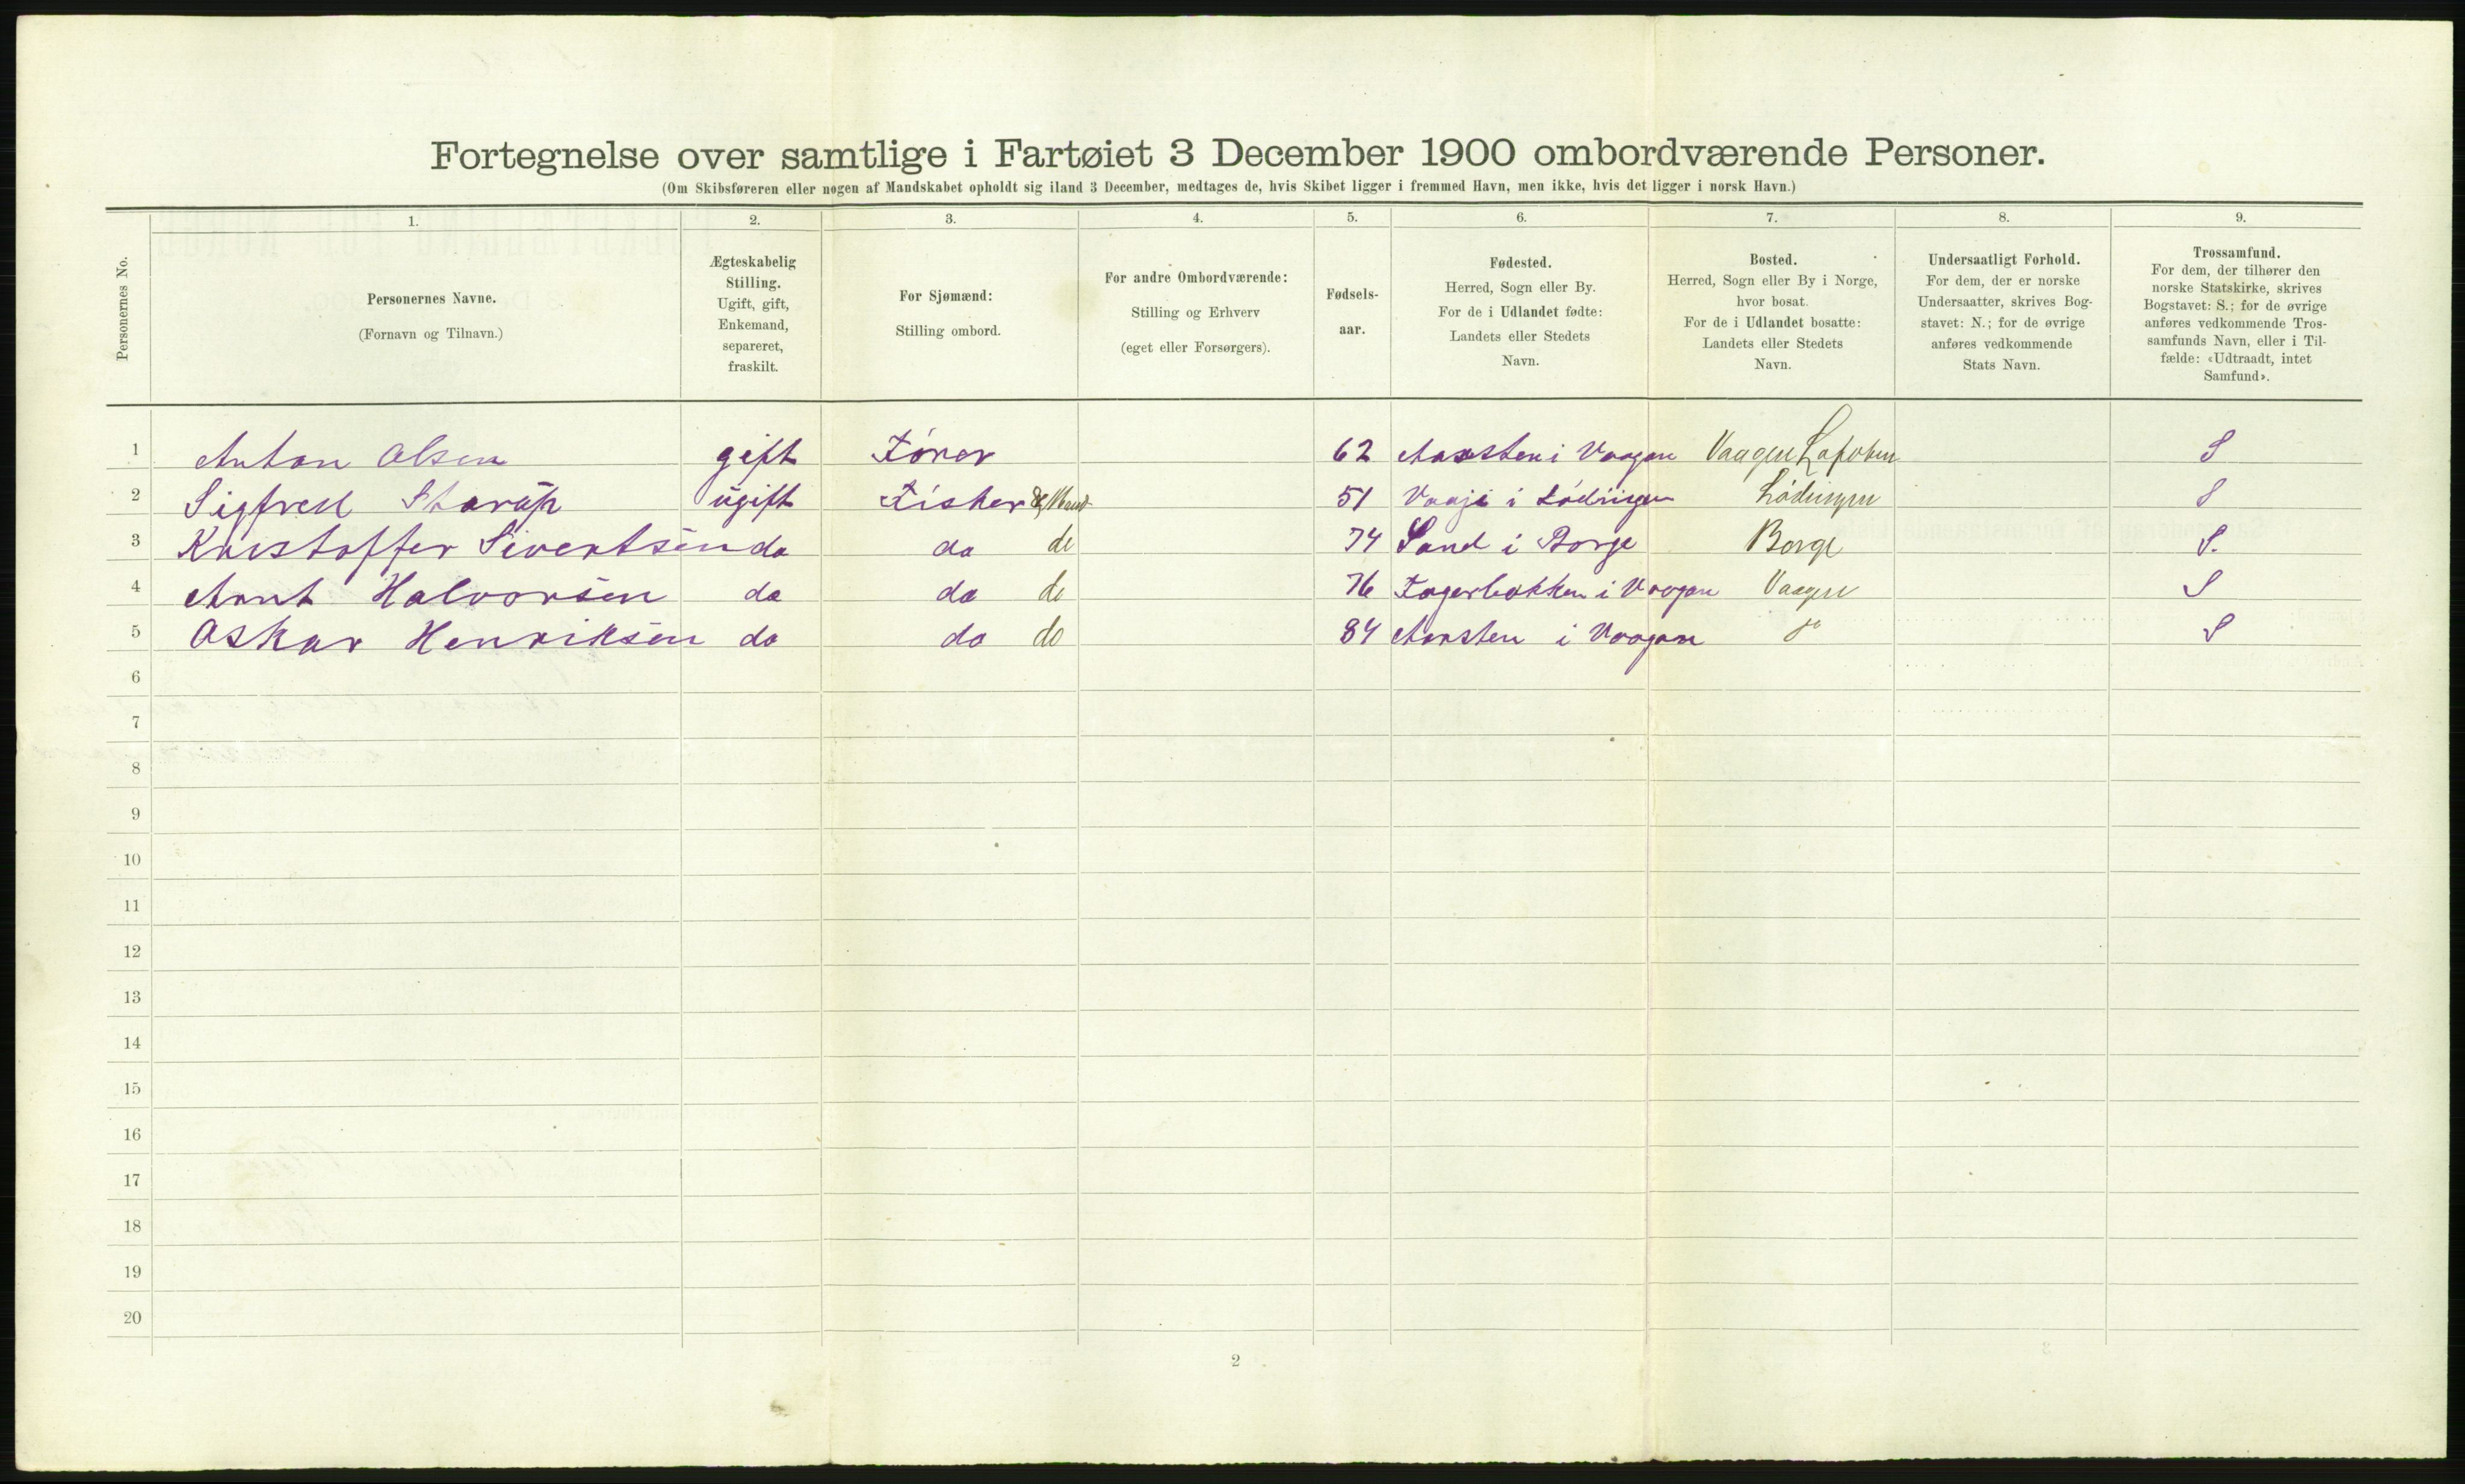 Fortegnelse over samtlige i Fartøiet 3 December 1900 ombordværende Personer.
(Om Skibsføreren eller nogen af Mandskabet opholdt sig iland 3 December, medtages de, hvis Skibet ligger i fremmed Havn, men ikke, hvis det ligger i norsk Havn.)
Personernes No.
1.
Personernes Navne.
(Fornavn og Tilnavn.)
2.
Ægteskabelig
Stilling.
Ugift, gift,
Enkemand,
separeret,
fraskilt.
3.
For Sjømænd:
Stilling ombord.
4.
For andre Ombordværende:
Stilling og Erhverv
(eget eller Forsørgers).
5.
Fødsels-
aar.
6.
Fødested.
Herred, Sogn eller By.
For de i Udlandet fødte:
Landets eller Stedets
Navn.
7.
Bosted.
Herred, Sogn eller By i Norge,
hvor bosat.
For de i Udlandet bosatte:
Landets eller Stedets
Navn.
8.
Undersaatligt Forhold.
For dem, der er norske
Undersaatter, skrives Bog-
stavet: N.; for de øvrige
anføres vedkommende
Stats Navn.
9.
Trossamfund.
For dem, der tilhører den
norske Statskirke, skrives
Bogstavet: S.; for de øvrige
anføres vedkommende Tros-
samfunds Navn, eller i Til-
fælde: «Udtraadt, intet
Samfund».
1 Anton Olsen gift Fórer 62 i Vaagan Vaagen Lofoten S
2 Sigfred ugift Fisker 51 i Lódingen Lódingen S
3 Kristoffer Sivertsen do do do 74 Sand i Borge Borge S.
4 Arnt Halvorsen do do do 76 i Vaagan Vaagen S
5 Oskar Henriksen do do do 84 i Vaagan do S
6
7
8
9
10
11
12
13
14
15
16
17
18
19
20
2